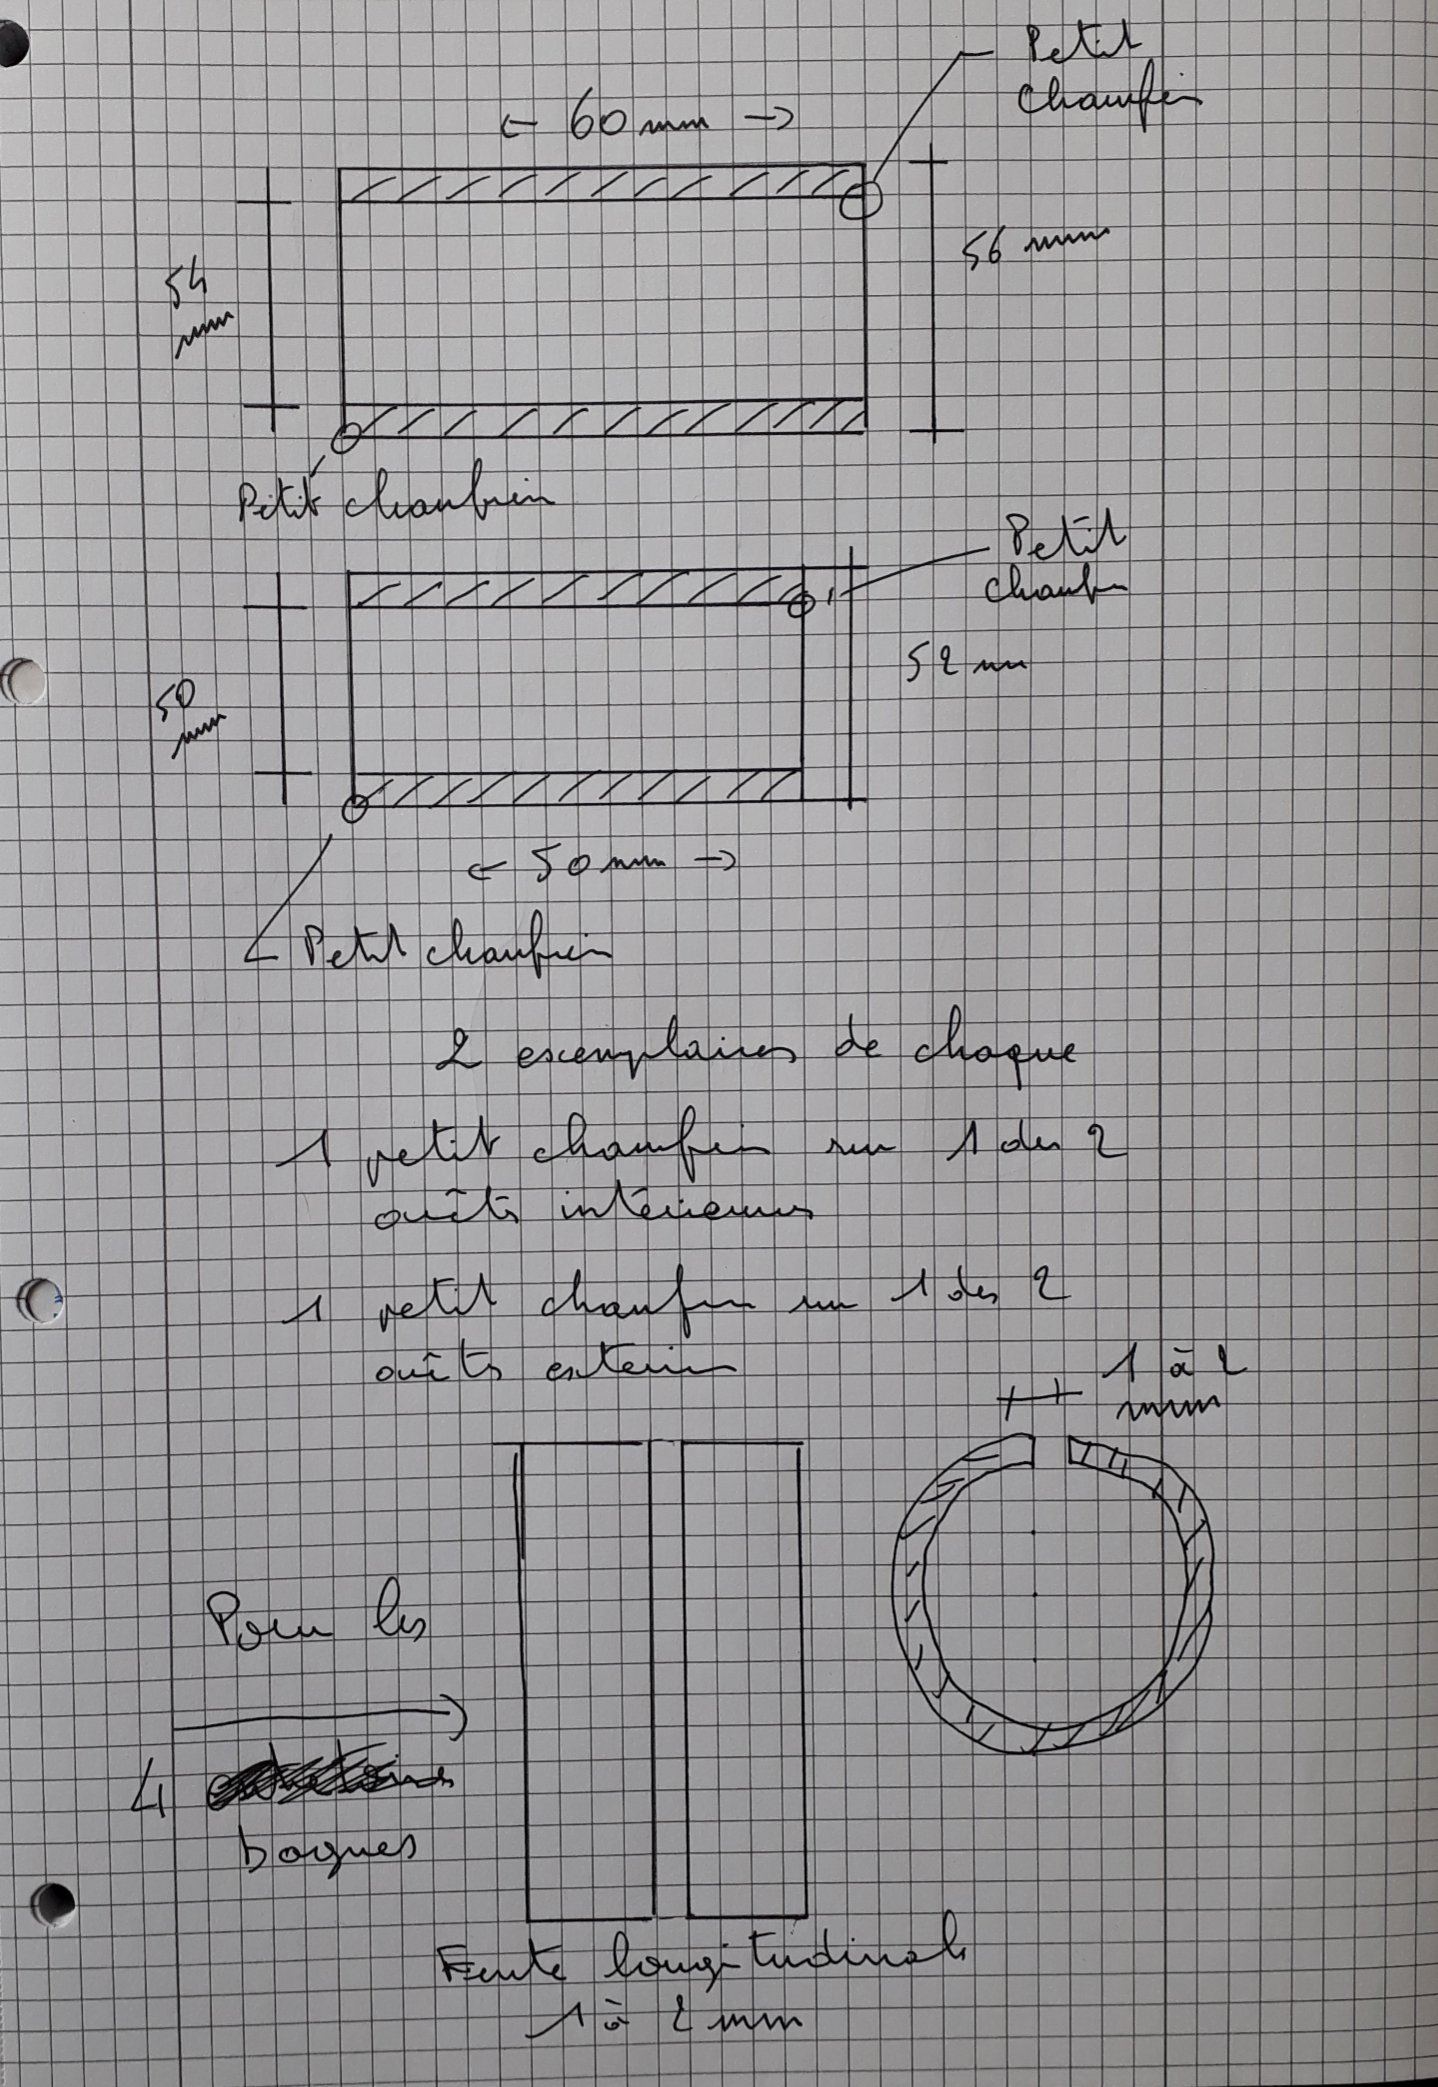 Petit
chanfrein
← 60 mm →
56 mm
54
mm
Petit chanfrein
Petit
chanf
52 mm
50
mm
← 50 mm →
Petit chanfrein
2 exemplaires de chaque
1 petit chanfrein sur 1 des 2
arrêts intérieurs
1 petit chanfrein sur 1 des 2
arrêts exterieurs
1 à 2
mm
Pour les
4
bagues
Fente longitudinale
1 à 2 mm